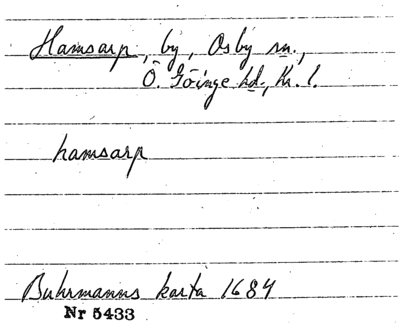 Hamsarp, by, Osby sn.,
Ö. Göinge hd., Kr. l.
hamsarp
Buhrmanns karta 1684
Nr 5433